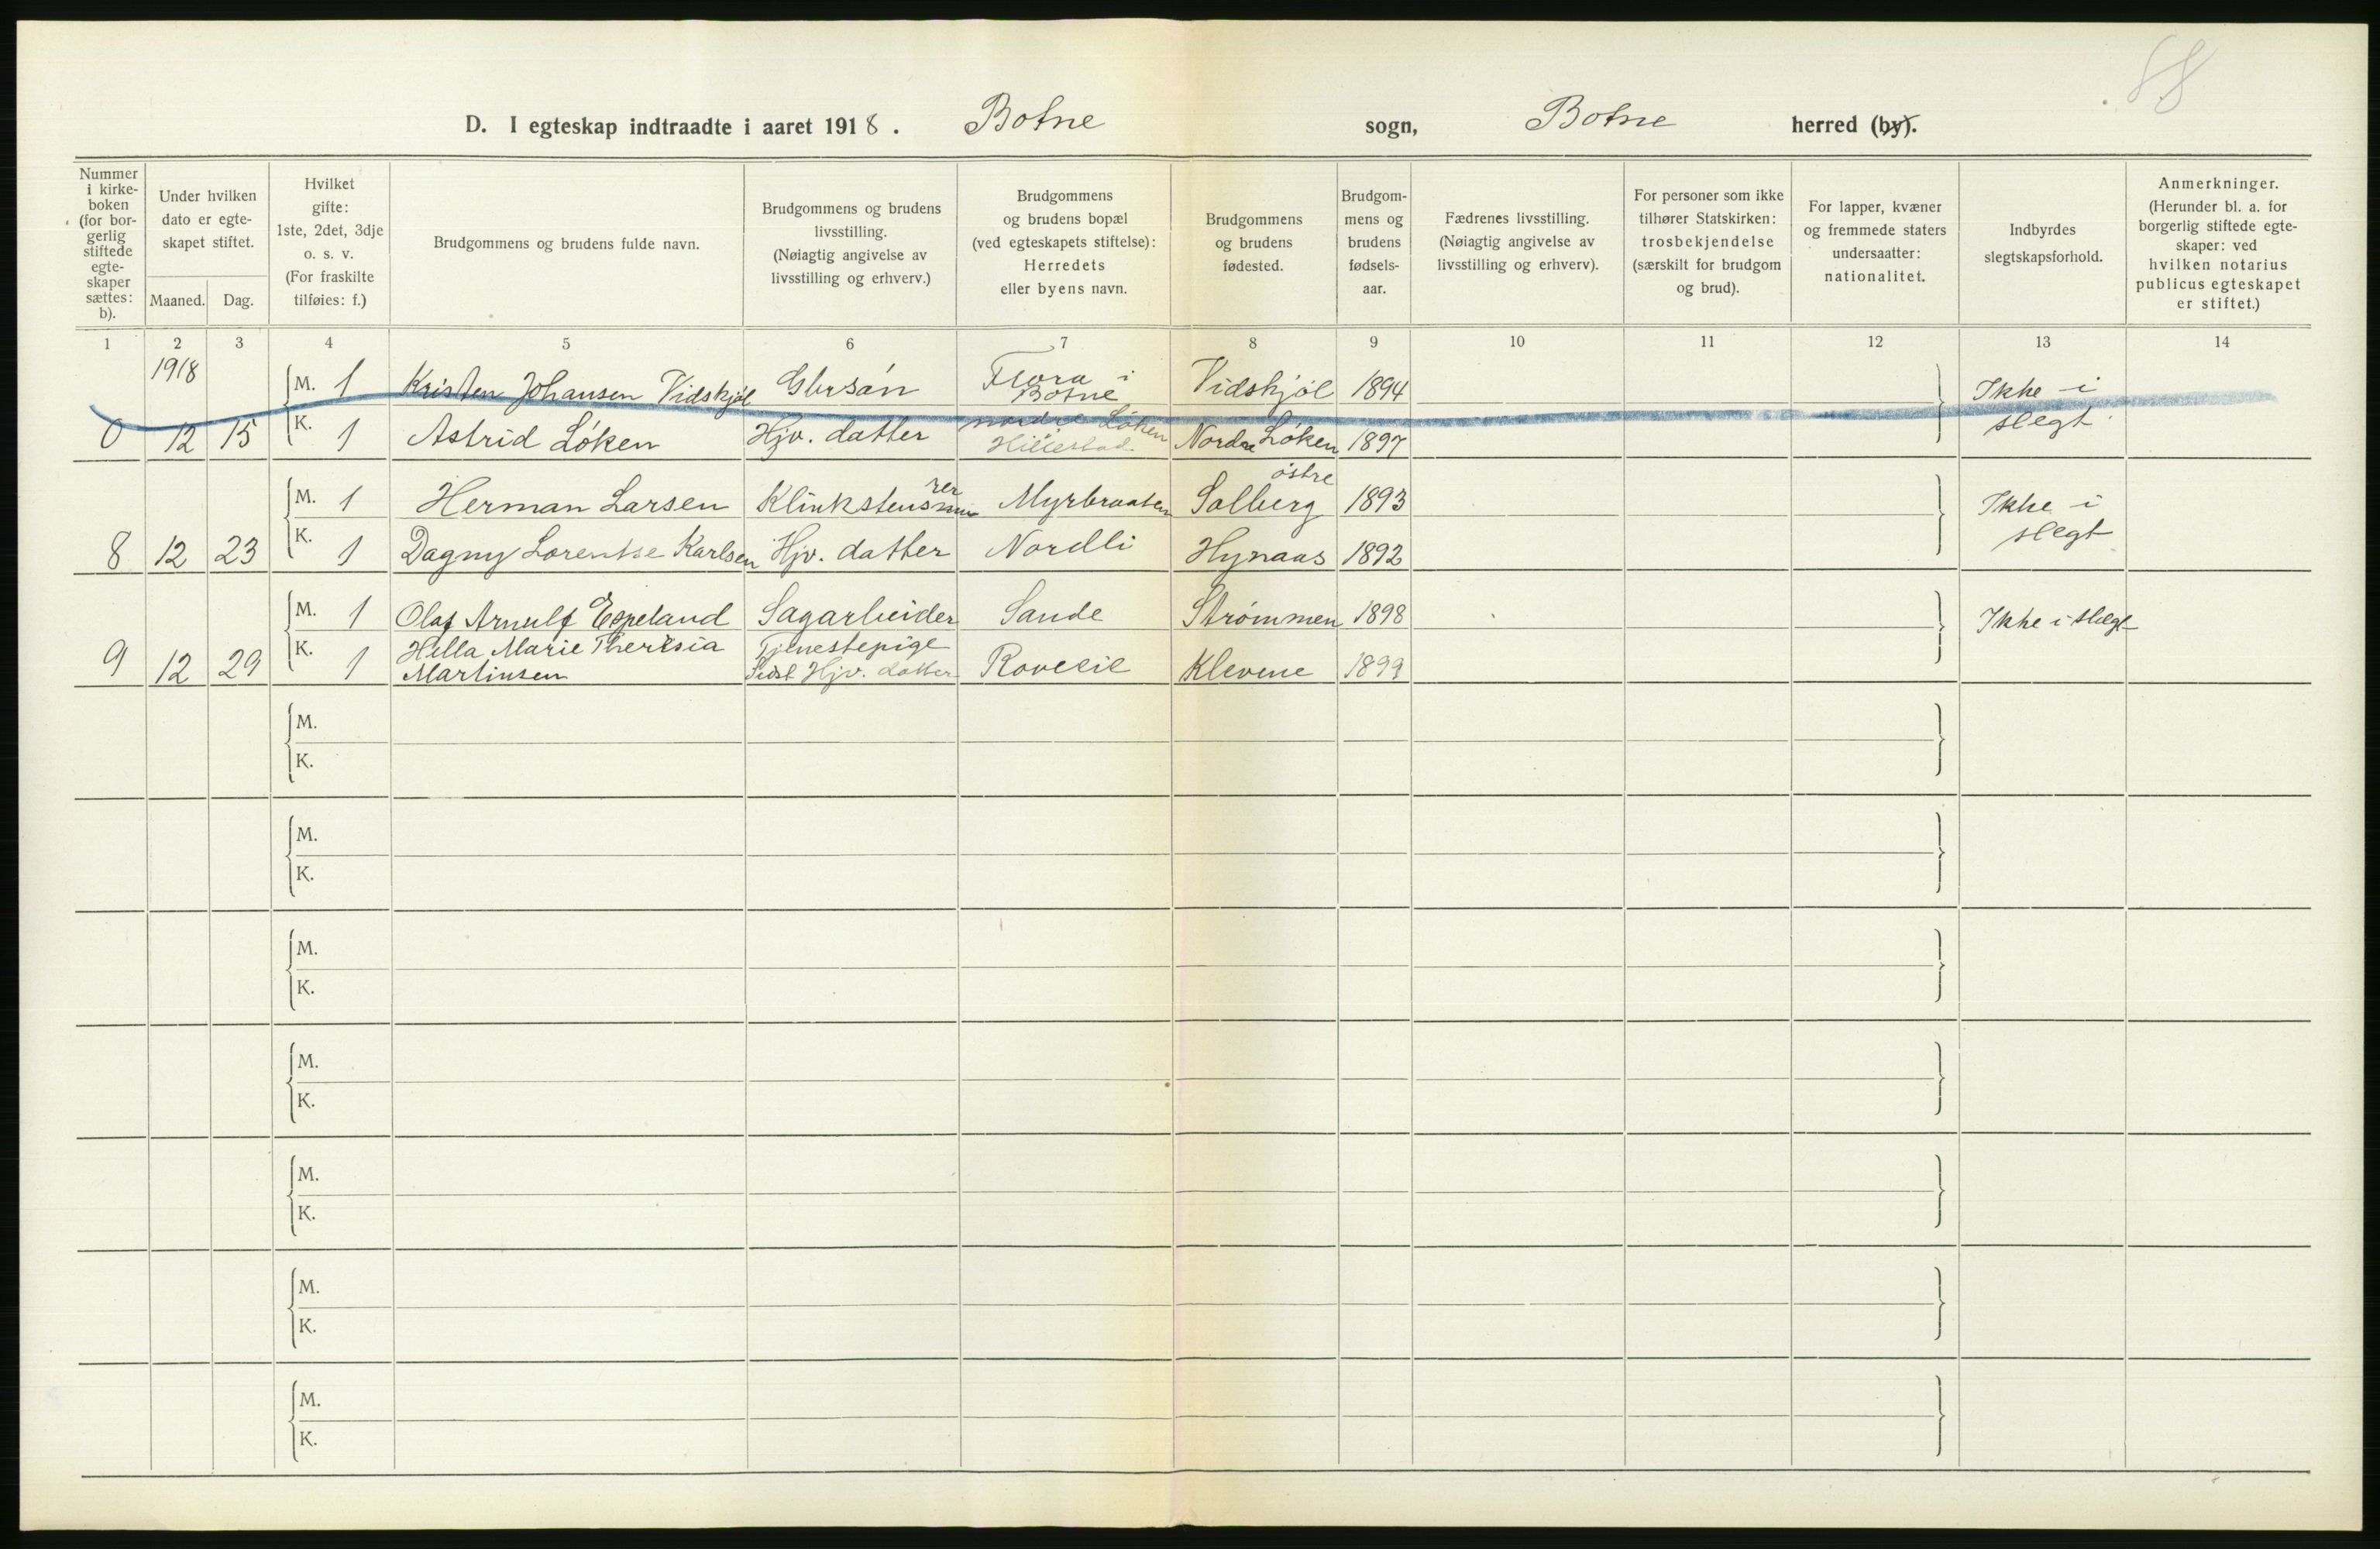 88
D. I egteskap indtraadte i aaret 1918. Botne sogn, Botne herred (by).
Nummer
i kirke-
boken
(for bor-
gerlig
stiftede
egte-
skaper
sættes:
b).
Under hvilken
dato er egte-
skapet stiftet.
Maaned. Dag.
Hvilket
gifte:
1ste, 2det, 3dje
o. s. v.
(For fraskilte
tilføies: f.)
Brudgommens og brudens fulde navn.
Brudgommens og brudens
livsstilling.
(Nøiagtig angivelse av
livsstilling og erhverv.)
Brudgommens
og brudens bopæl
(ved egteskapets stiftelse):
Herredets
eller byens navn.
Brudgommens
og brudens
fødested.
Brudgom-
mens og
brudens
fødsels-
aar.
Fædrenes livsstilling.
(Nøiagtig angivelse av
livsstilling og erhverv).
For personer som ikke
tilhører Statskirken:
trosbekjendelse
(særskilt for brudgom
og brud).
For lapper, kvæner
og fremmede staters
undersaatter:
nationalitet.
Indbyrdes
slegtskapsforhold.
Anmerkninger.
(Herunder bl. a. for
borgerlig stiftede egte-
skaper: ved
hvilken notarius
publicus egteskapet
er stiftet.)
1 2 3 4 5 6 7 8 9 10 11 12 13 14
1918
M. 1 Kristen Johansen Vidskjøl Gbrsøn Flora i Botne Vidskjøl 1894 Ikke i
0 12 15 K. 1 Astrid Løken Hjv. datter nordre Løken Hillestad Nordre Løken 1897 slegt
M. 1 Herman Larsen Klinkstens rer Myrbraaten østre Solberg 1893 Ikke i
8 12 23 K. 1 Dagny Lorentse Karlsen Hjv. datter Nordli Hynaas 1892 slegt
M. 1 Olaf Arnulf Espeland Sagarbeider Sande Strømmen 1898 Ikke i slegt
K. Hella Marie Theresia Tjenestepige
9 12 29 1 Martinsen Hjv. datter Roveliε Klevene 1899
M.
K.
M.
K.
M.
K.
M.
K.
M.
K.
M.
K.
M.
K.